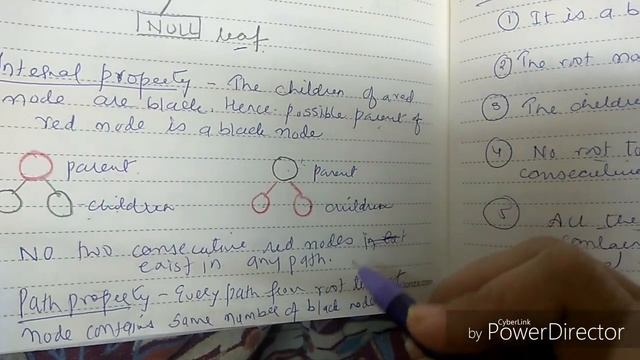 NULL
leaf
Internal property - The children of a red
node are black. Hence possible parent of
red node is a black node
parent
children
parent
children
No two consecutive red nodes
exist in any path.
Path property - Every path from root
node contains same number of black
① It is a b
② The root
③ The childre
④ No root to
consecutive
⑤ All the
contain
by CyberLink PowerDirector